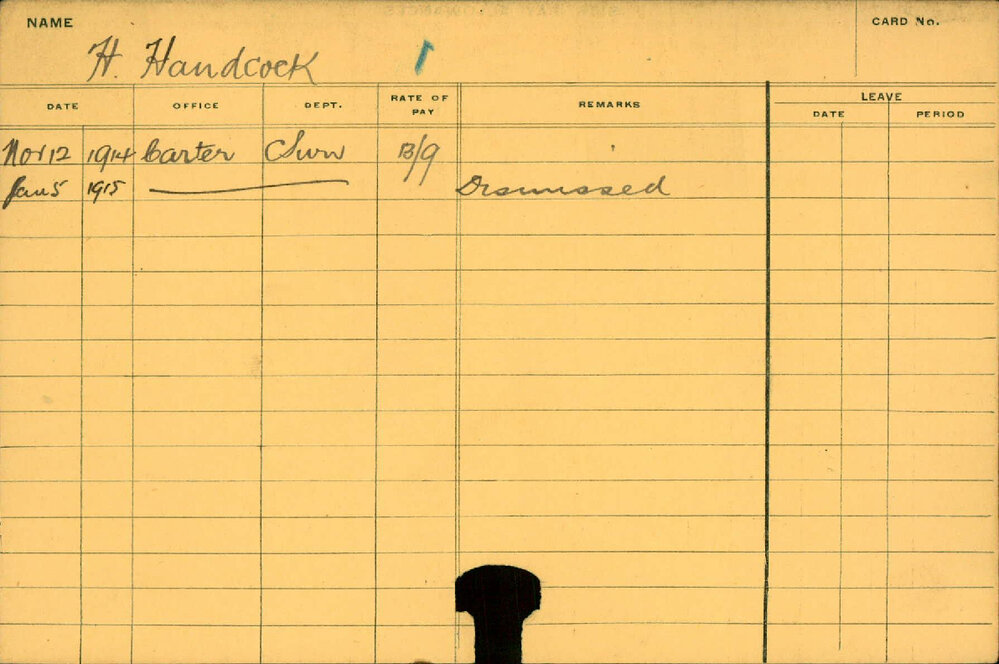 NAME
CARD No.
H. Handcock
DATE OFFICE DEPT. RATE OF PAY REMARKS LEAVE
DATE PERIOD
Nov 12 1914 Carter 13/9
Jan 5 1915 Dismissed